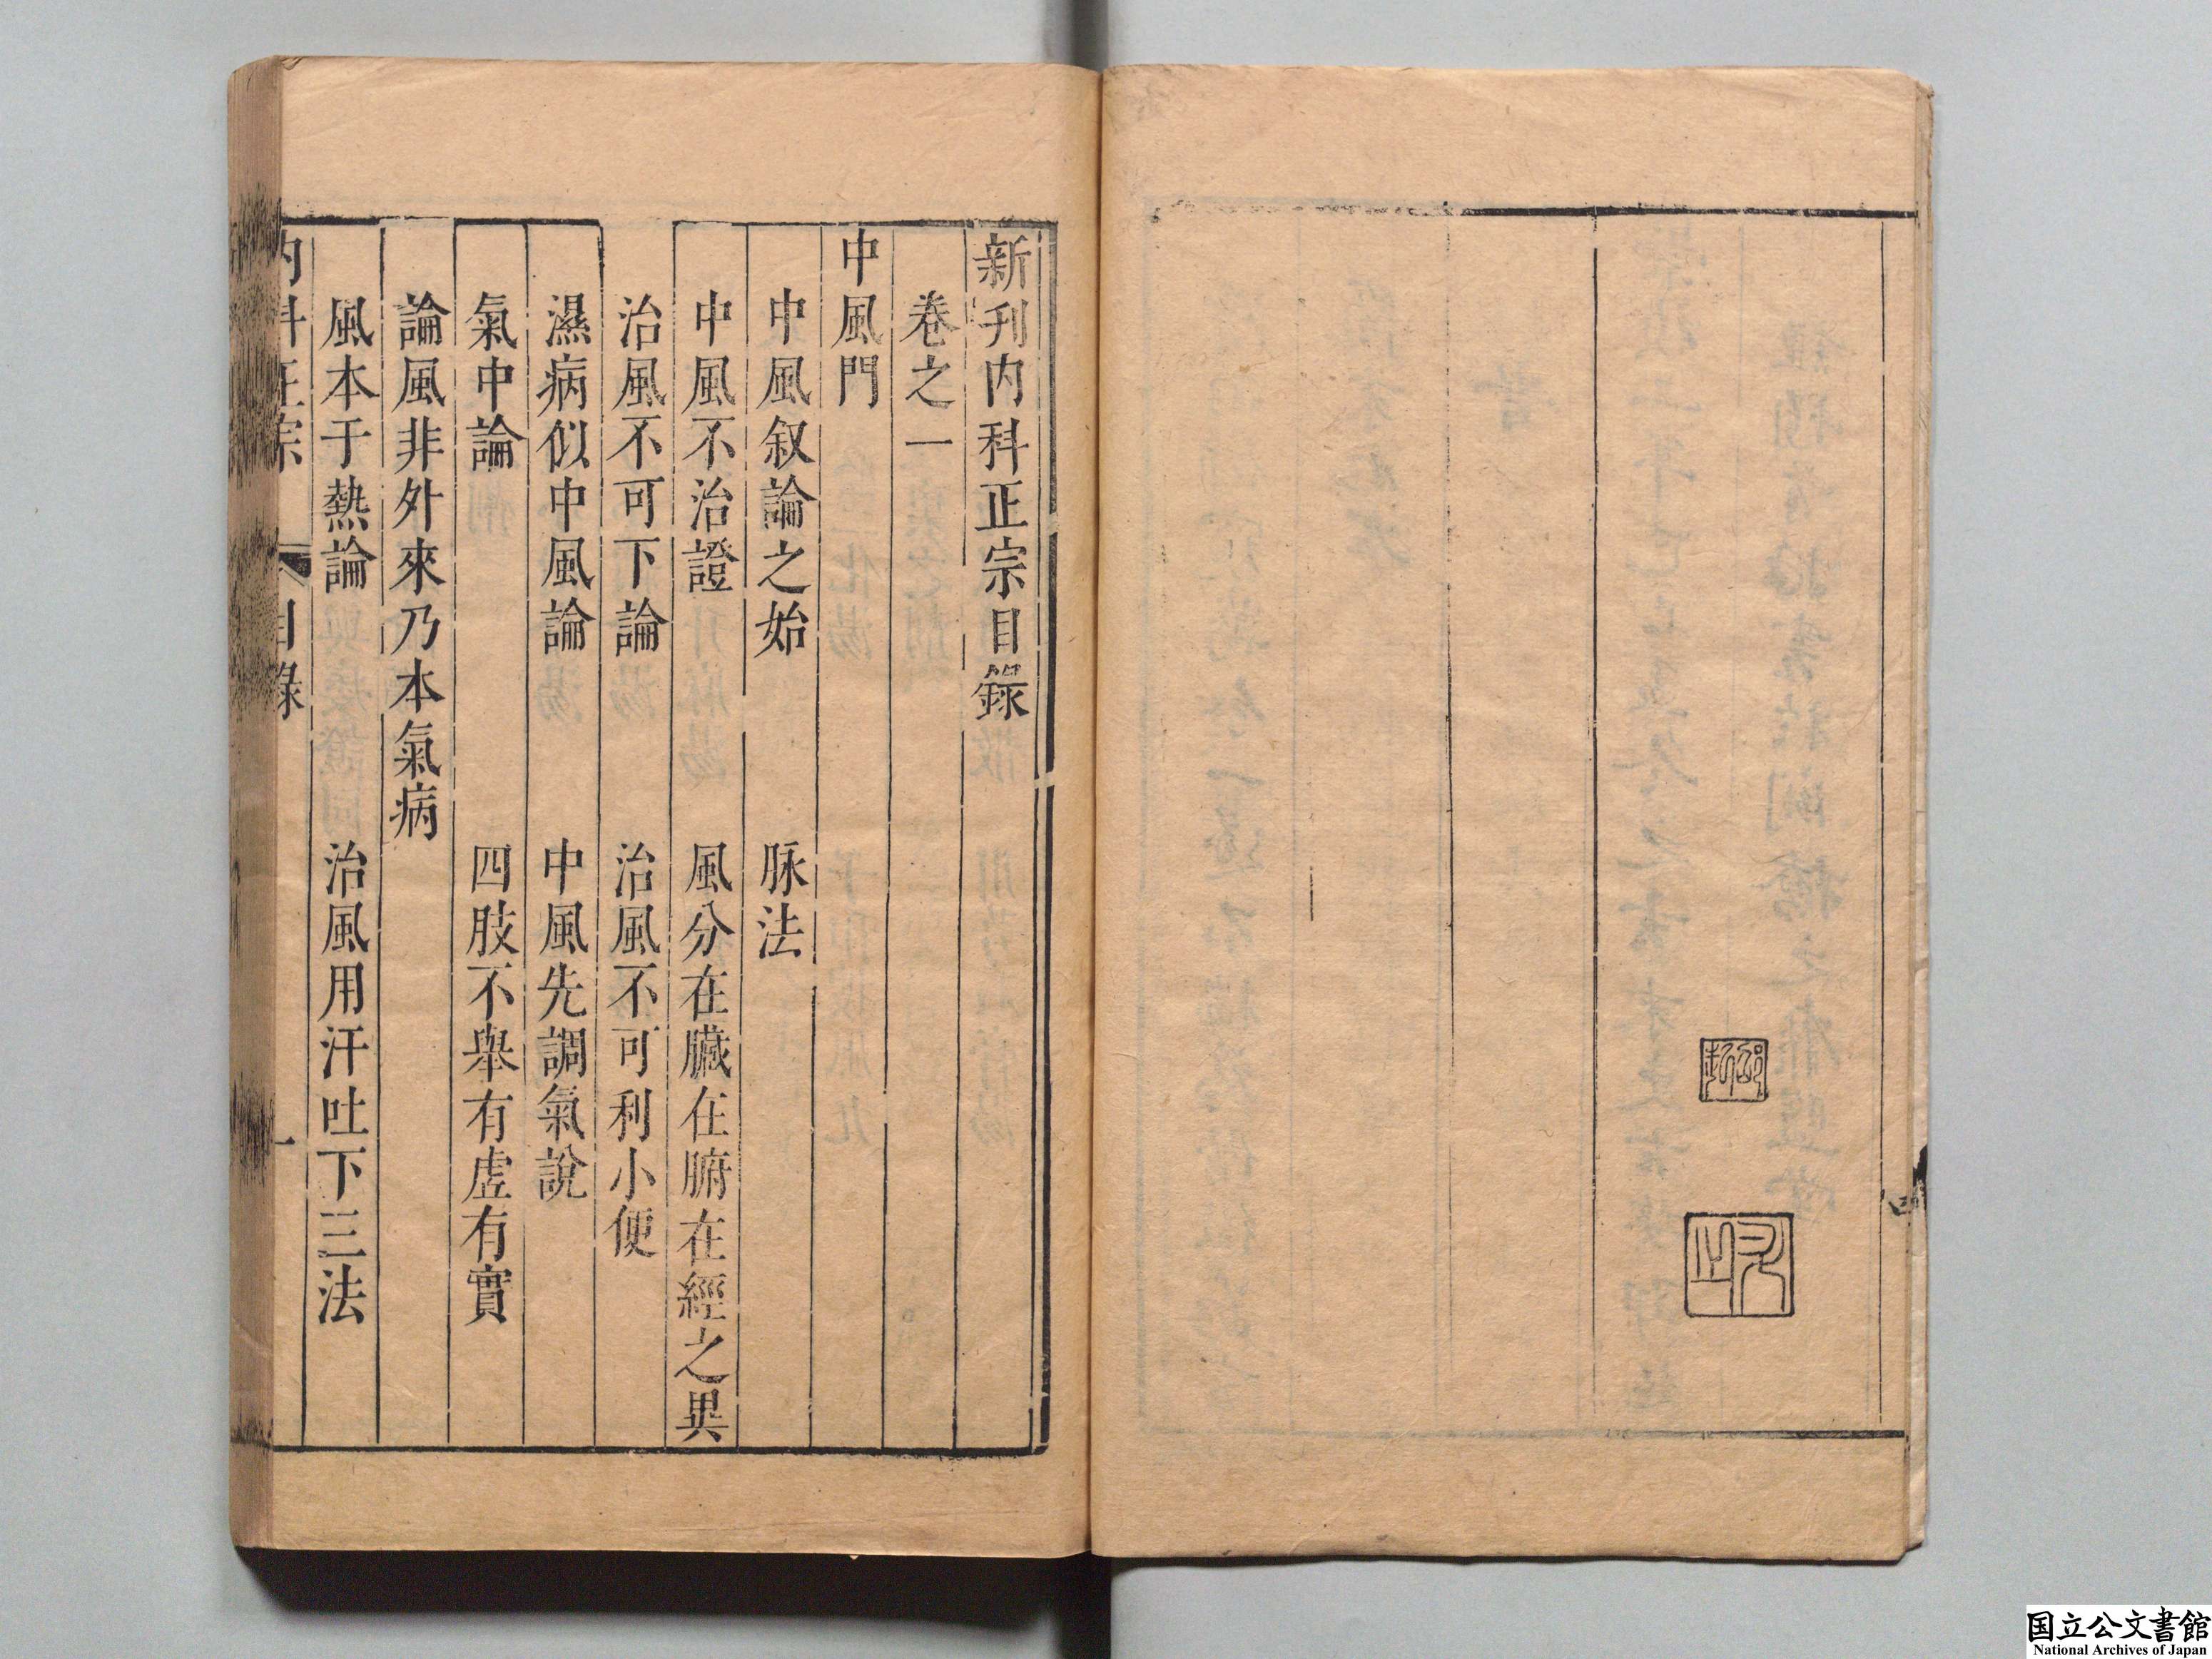 新刊内科正宗目錄
卷之一
中風門
中風叙論之始　脉法
中風不治證　風分在臟在腑在經之異
治風不可下論　治風不可利小便
濕病似中風論　中風先調氣說
氣中論　四肢不舉有虛有實
論風非外來乃本氣病
風本于熱論　治風用汗吐下三法
内科正宗　目錄　一
国立公文書館
National Archives of Japan